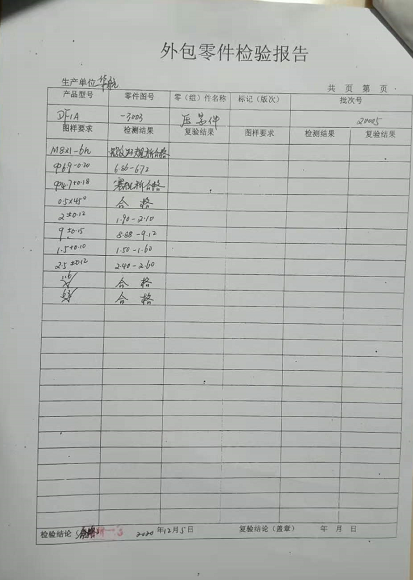 外包零件检验报告
生产单位 华航 共 页 第 页
产品型号 零件图号 零（组）件名称 标记（版次） 批次号
DF-1A -3003 压紧件 20005
图样要求 检测结果 复验结果 图样要求 检测结果 复验结果
M8X1-6h
Φ6.9-0.20 6.80-6.72
Φ4.7+0.18
0.5×45° 合格
2±0.12 1.90-2.10
9±0.15 8.88-9.12
1.5±0.10 1.50-1.60
2.5±0.12 2.40-2.60
合格
合格
检验结论 2020 年 12 月 5 日 复验结论（盖章） 年 月 日